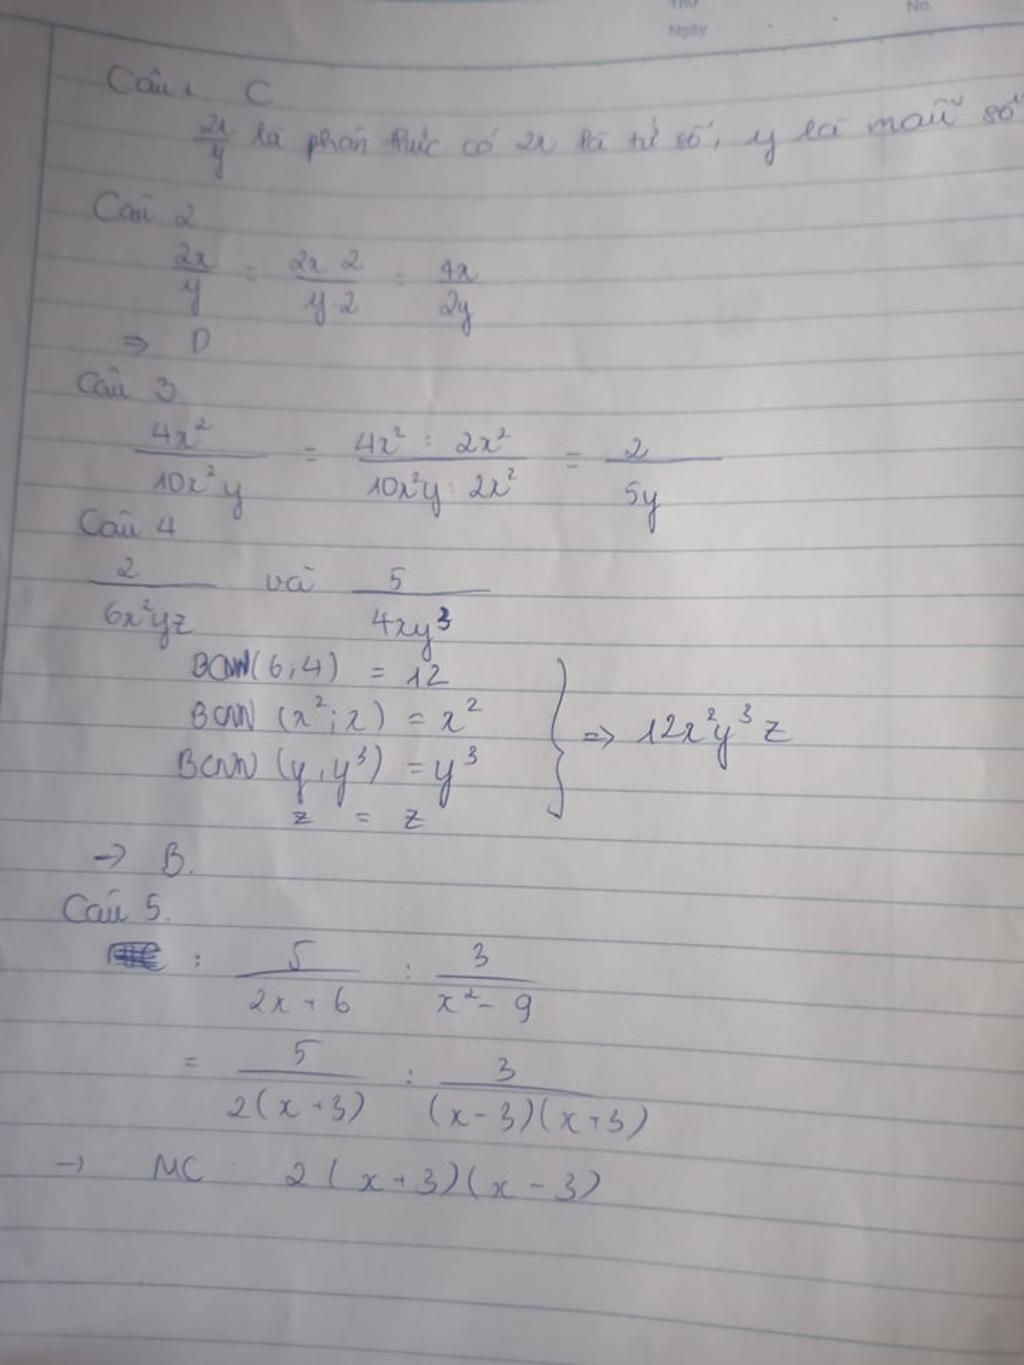 Thứ
Ngày
No.
Câu 1 C
2x/y là phân thức có 2x là tử số, y là mẫu số
Câu 2
2x/y = 2x 2/y·2 = 4x/2y
⇒ D
Câu 3
4x²/10x²y = 4x² : 2x²/10x²y : 2x² = 2/5y
Câu 4
2/6x²yz và 5/4xy³
BCNN(6;4) = 12
BCNN (x²;x) = x²
⇒ 12x²y³z
BCNN (y,y³) = y³
z = z
→ B.
Câu 5.
: 5/2x+6 : 3/x²-9
= 5/2(x+3) : 3/(x-3)(x+3)
→ MC : 2(x+3)(x-3)